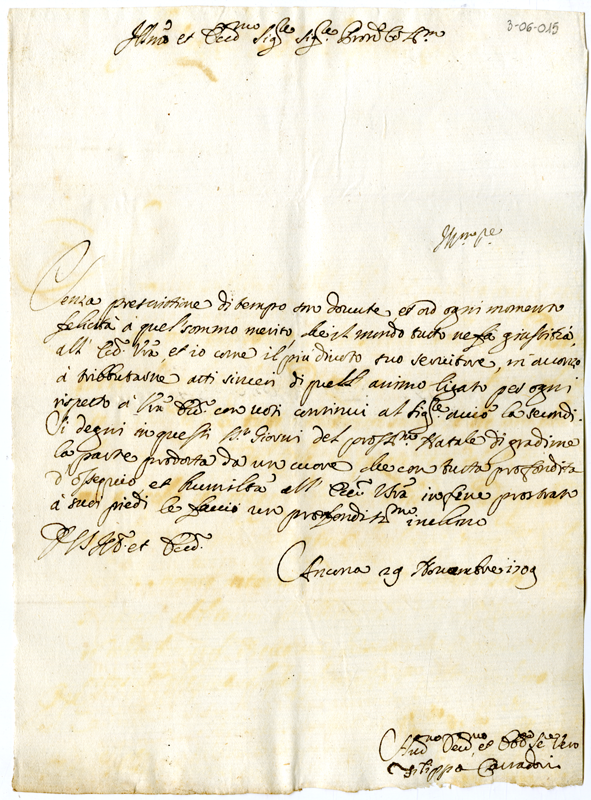 3-06-015
Illmo et Eccmo Sigre Sigre
Senza prescrittione di tempo son dovute et ad ogni momento
felicità à quel sommo merito che il mondo tutto ne fa giustitia,
all' Ecc. Vra, et io come il più divoto suo servitore, m'avanzo
à tributarne atti sinceri di quell' animo ligato per ogni
rispetto à Vra Ecc. con voti continui al Sigre acciò la secondi.
Si degni in questi Sti Giorni del prossmo Natale di gradirne
la parte prodotta da un cuore che con tutta profondità
d'ossequio et humiltà all' Ecc. Vra in fine prostrato
à suoi piedi le faccio un profondissmo inchino
D V S Ill. et Ecc.
Ancona 29 Novembre 1709
Devmo et Obbmo Sere Vero
Filippo